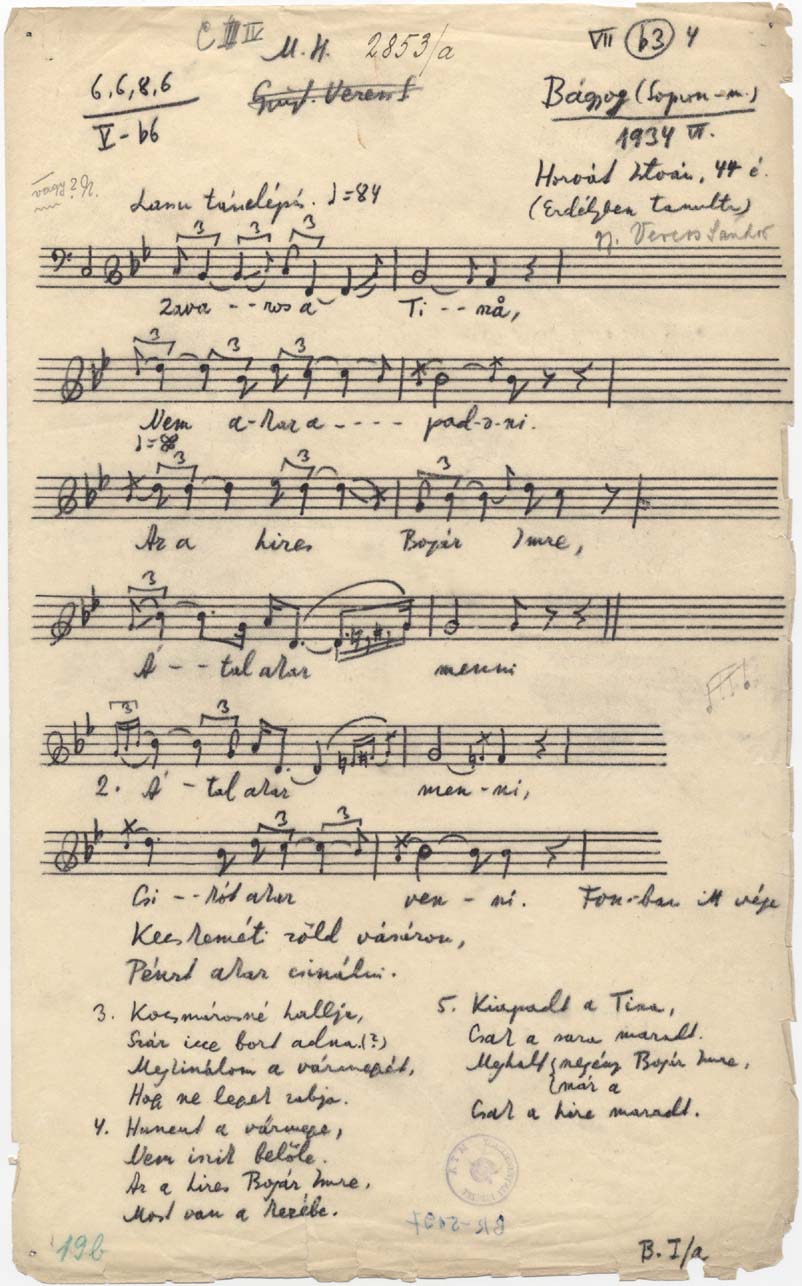 C III IV
M. H. 2853/a
VII (b3) 4
6,6,8,6
V - b6
Gyűjt. Veress S.
Bágyog (Sopron-m.)
1934 VI.
Horvát István, 44 é.
(Erdélyben tanulta)
gy. Veress Sándor
vagy 2/4.
Lassu tánclépés. ♩=84
Zava - - ros a Ti - - sză,
Nem a-kar a - - - - pad-ə-ni.
Az a hires Bogár Imre,
Á - - tal akar menni
2. Á - tal akar men - ni,
Csi - - kót akar ven - ni. Fon-ban itt vége
Kecskeméti zöld vásáron,
Pénzt akar csinálni.
3. Kocsmárosné hallja,
Száz icce bort adna.(?)
Megkinálom a vármegyét,
Hogy ne legyek rabja.
4. Huncut a vármegye,
Nem iszik belőle.
Az a hires Bogár Imre,
Most van a kezébe.
5. Kiapadt a Tisza,
Csak a sara maradt.
Meghalt szegény Bogár Imre,
már a
Csak a hire maradt.
BR-5197
19b
B. I/a